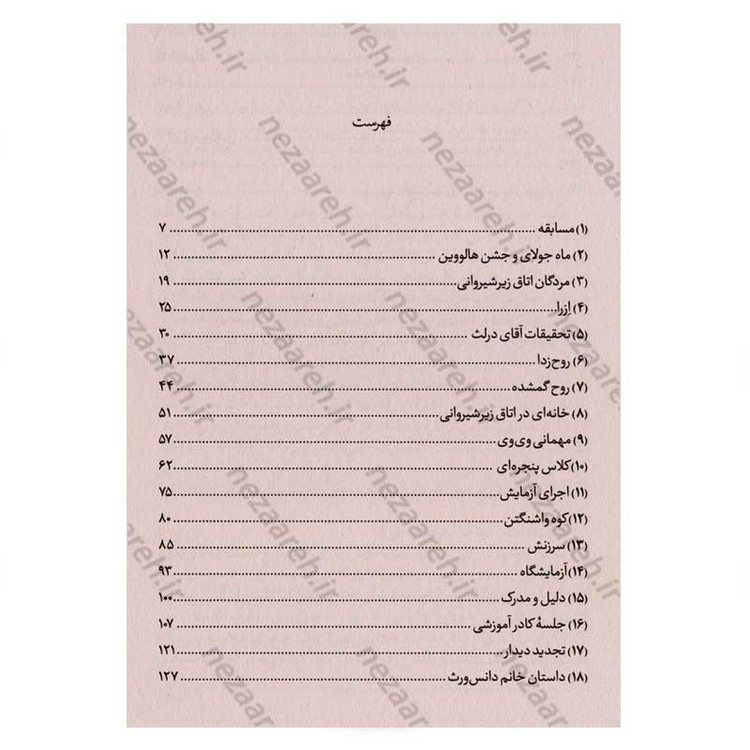 فهرست
۱) مسابقه ........ ۷
۲) ماه جولای و جشن هالووین ........ ۱۲
۳) مردگان اتاق زیرشیروانی ........ ۱۹
۴) اِزرا ........ ۲۵
۵) تحقیقات آقای درلث ........ ۳۰
۶) روح‌زدا ........ ۳۷
۷) روح گمشده ........ ۴۴
۸) خانه‌ای در اتاق زیرشیروانی ........ ۵۱
۹) مهمانی وی‌وی ........ ۵۷
۱۰) کلاس پنجره‌ای ........ ۶۲
۱۱) اجرای آزمایش ........ ۷۵
۱۲) کوه واشنگتن ........ ۸۰
۱۳) سرزنش ........ ۸۵
۱۴) آزمایشگاه ........ ۹۳
۱۵) دلیل و مدرک ........ ۱۰۰
۱۶) جلسهٔ کادر آموزشی ........ ۱۰۷
۱۷) تجدید دیدار ........ ۱۲۱
۱۸) داستان خانم دانس‌ورث ........ ۱۲۷
nezaareh.ir